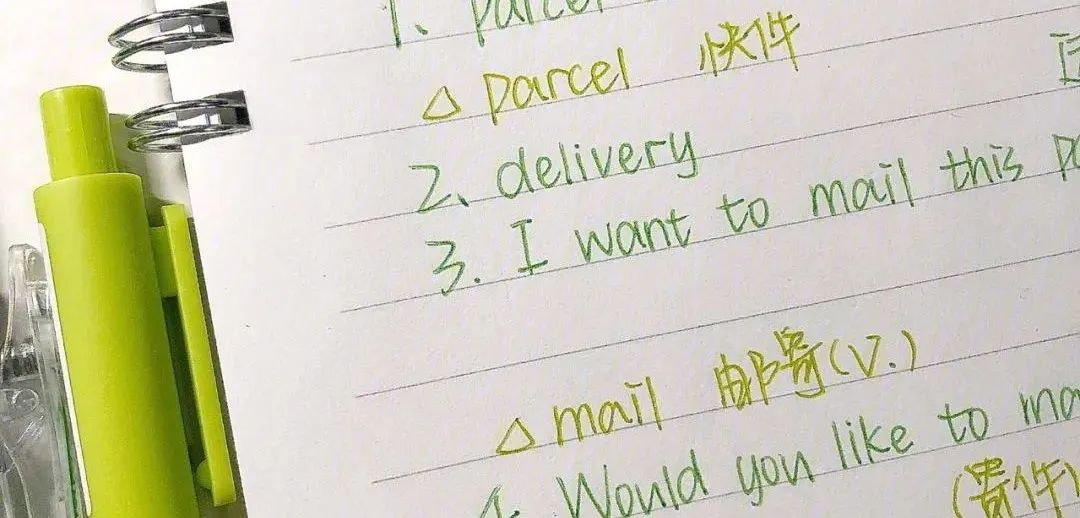 1、parcel
△ parcel 快件
2、delivery
3. I want to mail this
△ mail 邮寄(v.)
4. Would you like to
(寄件)